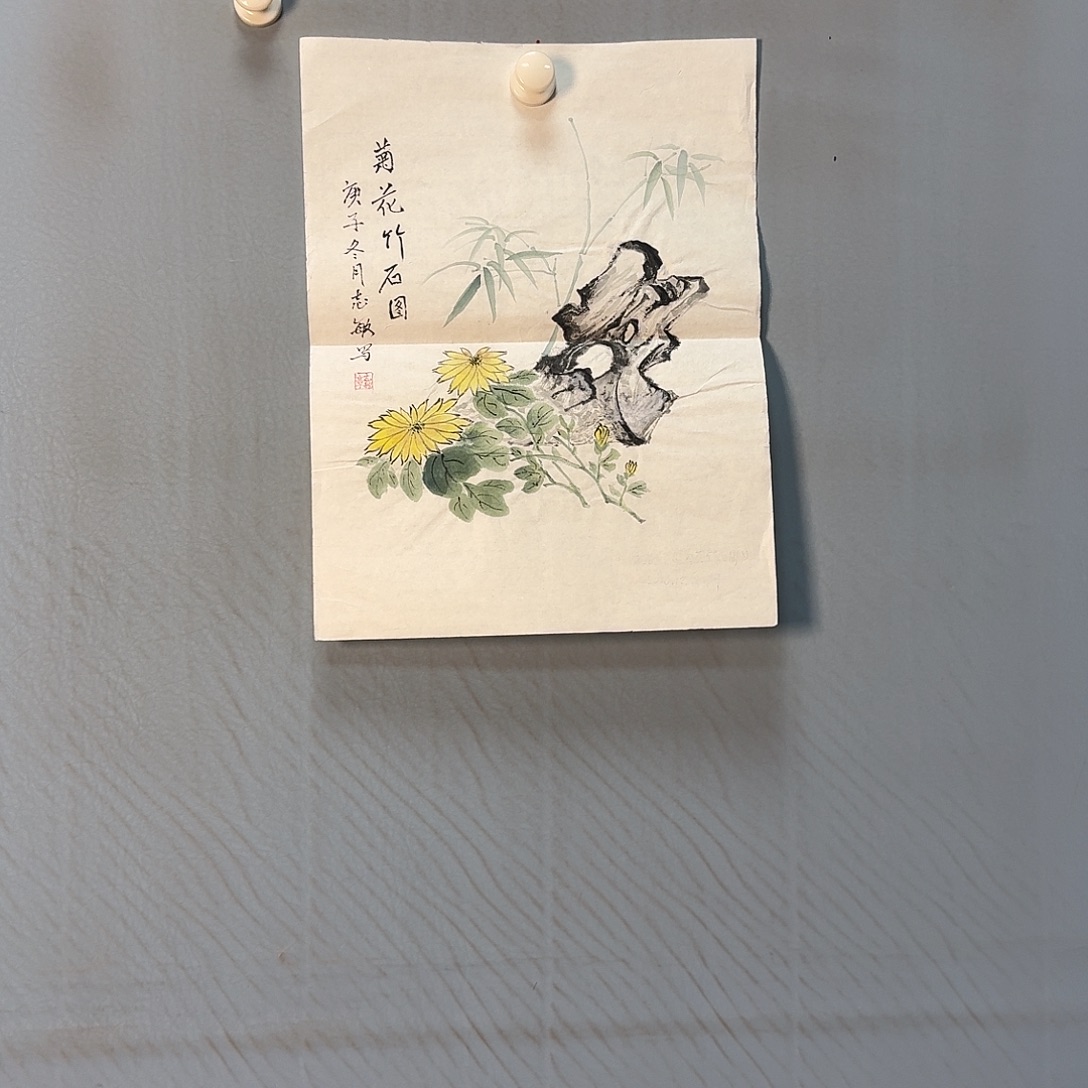 菊花竹石图
庚子冬月志敏写